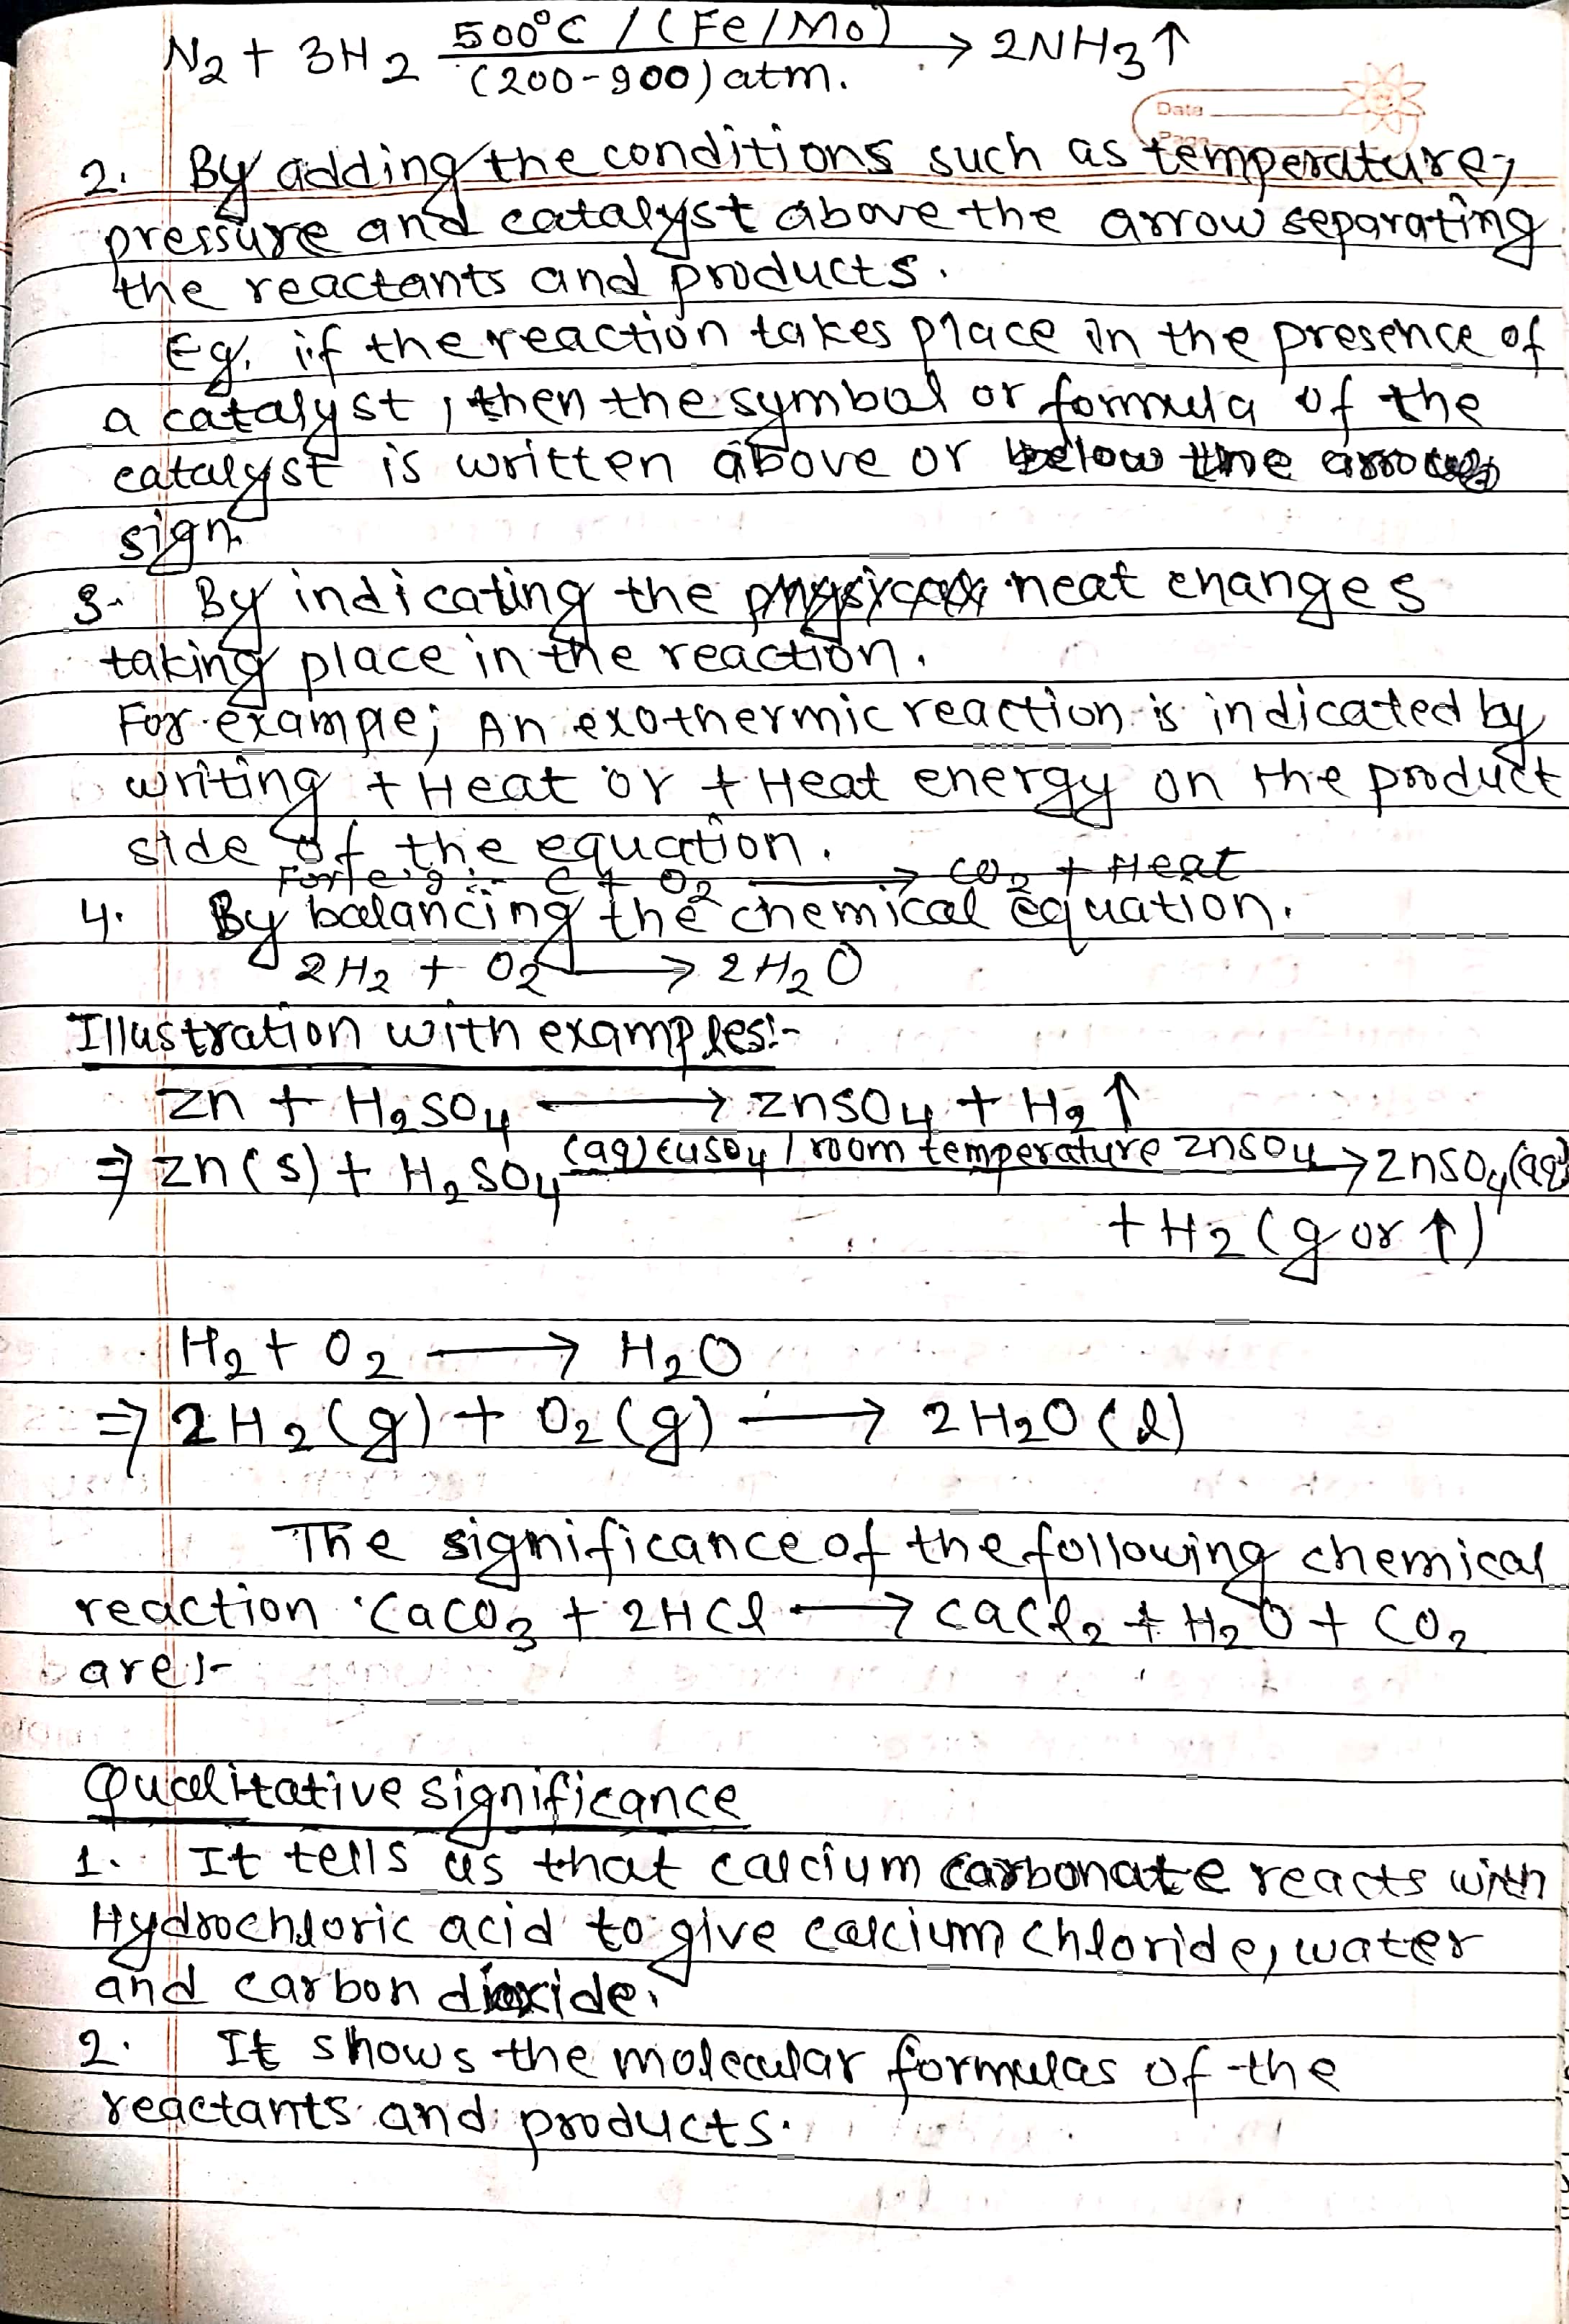 N2 + 3H2 500°C / (Fe/Mo) → 2NH3↑
(200-900) atm.
Date
Page
2. By adding the conditions such as temperature,
pressure and catalyst above the arrow separating
the reactants and products.
Eg. if the reaction takes place in the presence of
a catalyst, then the symbol or formula of the
catalyst is written above or below the arrow
sign.
3. By indicating the physical heat changes
taking place in the reaction.
For example; An exothermic reaction is indicated by
writing + Heat or + Heat energy on the product
side of the equation.
For e.g:- C + O2 → CO2 + Heat
4. By balancing the chemical equation.
2H2 + O2 → 2H2O
Illustration with examples:-
Zn + H2SO4 → ZnSO4 + H2↑
⇒ Zn(s) + H2SO4 (aq) CuSO4 / room temperature ZnSO4 → ZnSO4(aq)
+ H2 (g or ↑)
H2 + O2 → H2O
⇒ 2H2(g) + O2(g) → 2H2O(l)
The significance of the following chemical
reaction CaCO3 + 2HCl → CaCl2 + H2O + CO2
are:-
Qualitative significance
1. It tells us that calcium carbonate reacts with
Hydrochloric acid to give calcium chloride, water
and carbon dioxide.
2. It shows the molecular formulas of the
reactants and products.